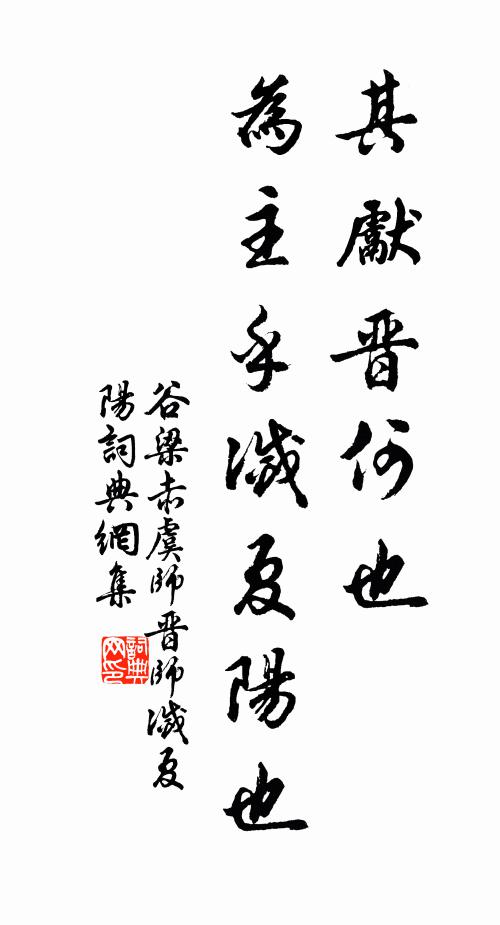 其獻晋何也
為主乎滅夏陽也
谷梁赤虞師晋師滅夏
陽詞典網集
詞典
网印